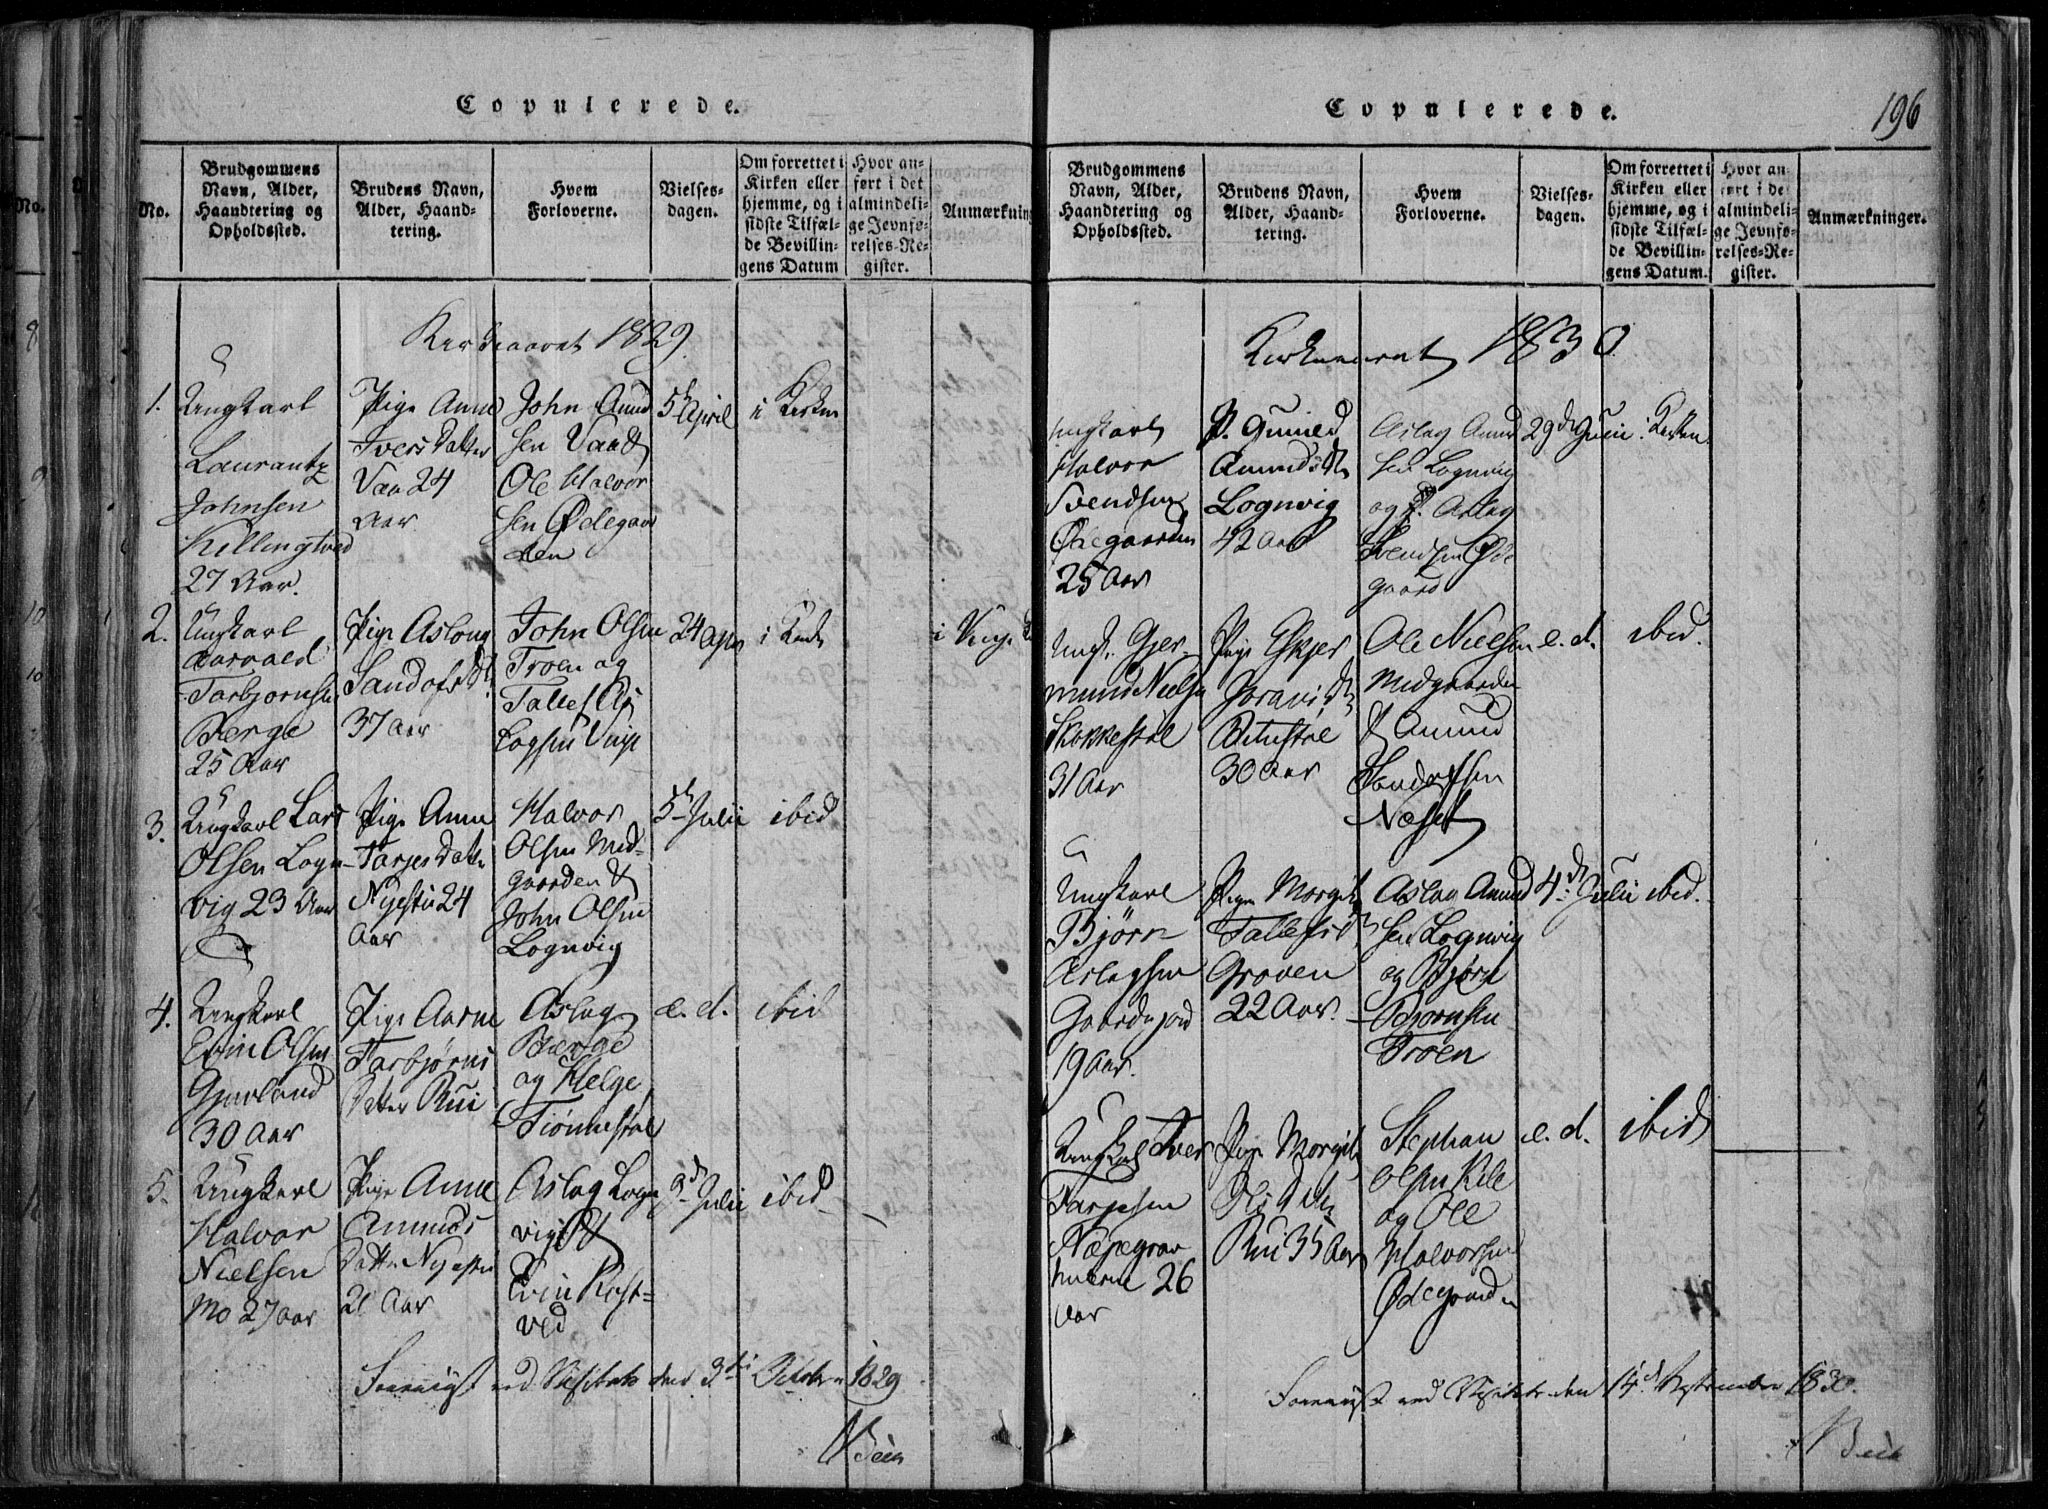 Copulerede.
No.
Brudgommens
Navn, Alder,
Haandtering og
Opholdssted.
Brudens Navn,
Alder, Haand-
tering.
Hvem
Forloverne.
Vielses-
dagen.
Om forrettet i
Kirken eller
hjemme, og i
sidste Tilfæl-
de Bevillin-
gens Datum
Hvor an-
ført i det
almindeli-
ge Jevnfø-
relses-Re-
gister.
Anmærkning
Kirkeaaret 1829.
1.
Ungkarl
Laurantz
Johnsen
Kellingtvedt
27 Aar.
Pige Anne
Ivers Datter
Vaa 24
Aar
John Amund
sen Vaa &
Ole Halvor
sen Ødegaar
den
5te April
i Kirken
2.
Ungkarl
Aarvald
Tarbjørnsen
Berge
25 Aar
Pige Asloug
Sandofs Dt.
37 Aar
John Olsen
Troen og
Tallef As
lagsen Vinje
24 Apr
i Kirk
i Vinje
3.
Ungkarl Lars
Olsen Logn-
vig 23 Aar
Pige Anne
Tarjes Datter
Nyestu 24
Aar
Halvor
Olsen Mid-
gaarden &
John Olsen
Lognvig
5te Julii
ibid
4.
Ungkarl
Evin Olsen
Gjuvland
30 Aar
Pige Aarne
Tarbjørns
Datter Rui
Aslag
Berge
og Helge
Tjønnestøl
e. d.
ibid
5.
Ungkarl
Halvor
Nielsen
Mo 27 Aar
Pige Anne
Amunds
Datter Nyestu
21 Aar
Aslag Logn
vig &
Evin Rost-
ved
3d Julii
ibid
Foreviist ved Visitats den 3die October 1829
Copulerede.
196
Brudgommens
Navn, Alder,
Haandtering og
Opholdssted.
Brudens Navn,
Alder, Haand-
tering.
Hvem
Forloverne.
Vielses-
dagen.
Om forrettet i
Kirken eller
hjemme, og i
sidste Tilfæl-
de Bevillin-
gens Datum.
Hvor an
ført i de
almindeli-
ge Jevnfø-
relses-Re-
gister.
Anmærkninger.
Kirkeaaret 1830.
Ungkarl
Halvor
Svendsen
Ødegaarden
25 Aar
P. Gunild
Amunds Dt
Lognvig
42 Aar
Aslag Amund
sen Lognvig
og P. Aslag
Svendsen Øde
gaard
29de Junii
i Kirken
Ungk. Gjer-
mund Nielsen
Skokkestøl
31 Aar
Pige
Bitustøl
30 Aar
Ole Nielsen
Midgaarden
& Amund
Sandofsen
Næset
e. d.
ibid.
Ungkarl
Bjørn
Aslagsen
19 Aar.
Pige Morgit
Tallefs Dt
Groven
22 Aar.
Aslag Amund
sen Lognvig
og Bjørn
Bjørnsen
Troen
4de Julii
ibid.
Ungkarl Iver
Tarjesen
26
Aar
Pige Morgit
Ols Datter
Rui 35 Aar
Stephan
Olsen Kile
og Ole
Halvorsen
Ødegaarden
e. d.
ibid
Foreviist ved Visitats den 14de September 1830.